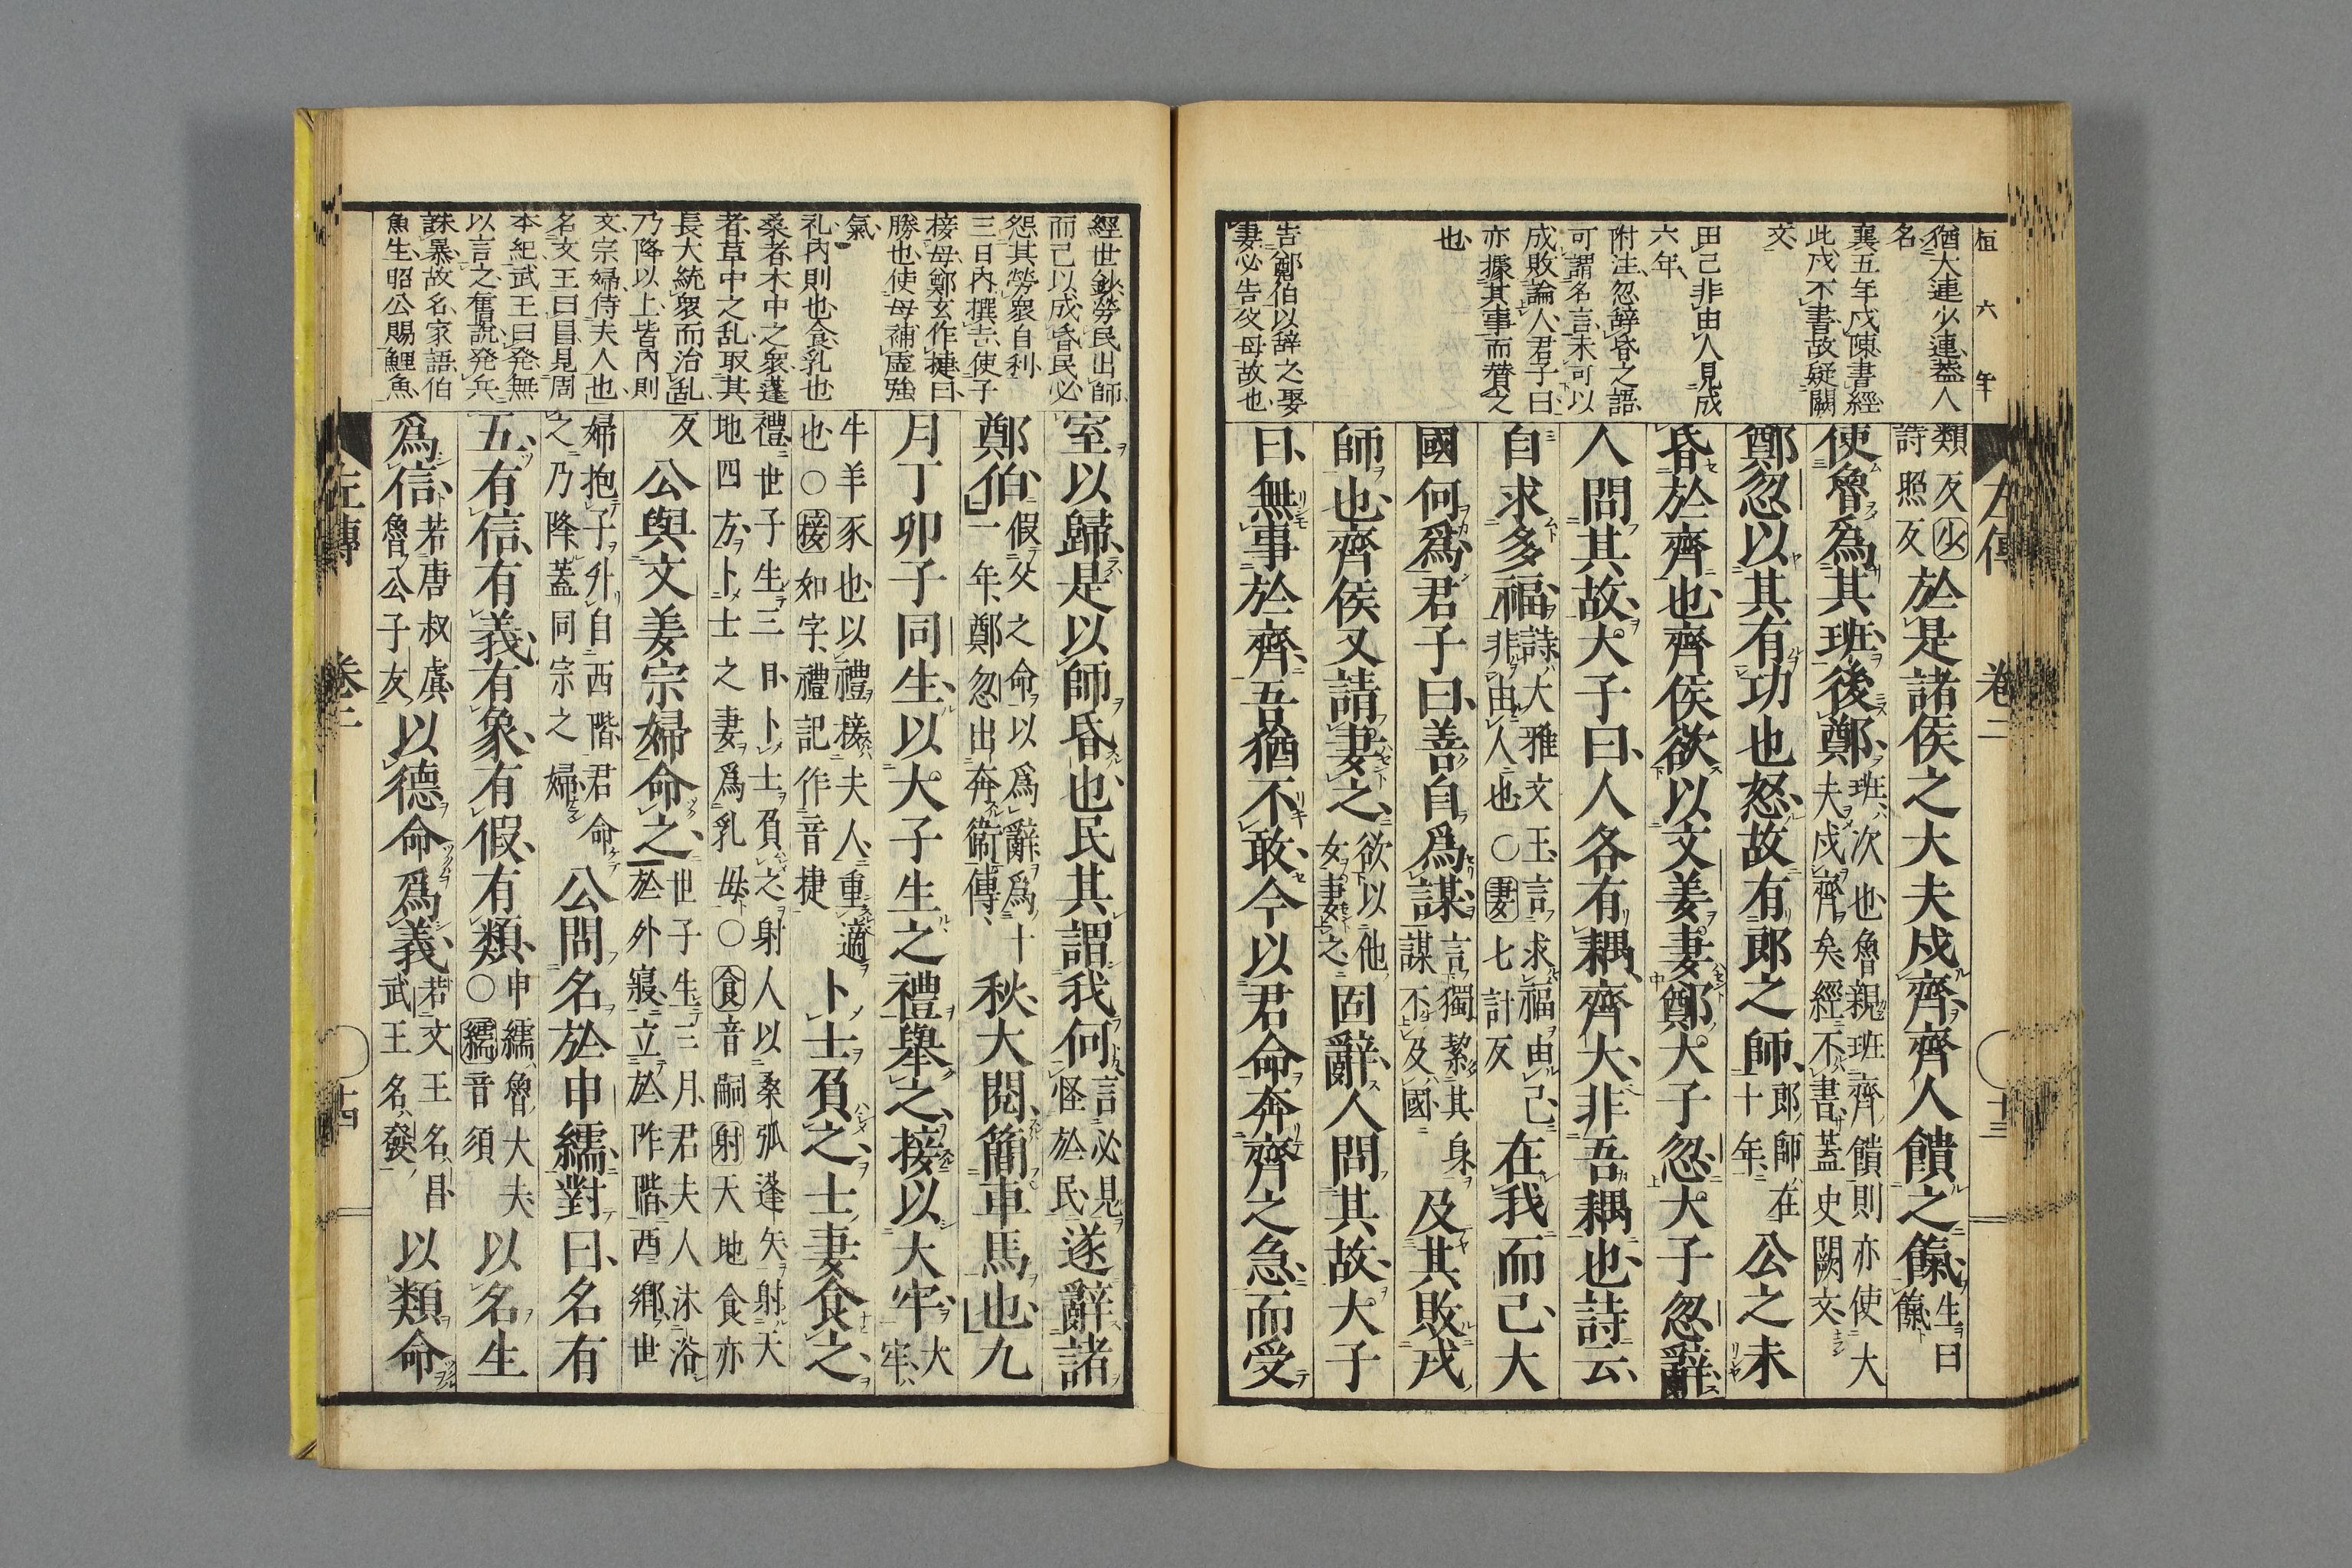 桓六年
猶大連少連蓋人
名
襄五年戍陳書經
此戍不書故疑闕
文
田己非由人見成
六年
附注忽辭昏之語
可謂名言未可以
成敗論人君子曰
亦據其事而賛之
也
告鄭伯以辞之娶
妻必告父母故也
左傳 卷二 十三
類反少
詩照反
於是諸侯之大夫戍齊齊人饋之餼
生曰
餼
使魯爲其班後鄭
班次也魯親班齊饋則亦使大
夫戍齊矣經不書蓋史闕文
鄭忽以其有功也怒故有郎之師
郎師在
十年
公之未
昏於齊也齊侯欲以文姜妻鄭大子忽大子忽辭
人問其故大子曰人各有耦齊大非吾耦也詩云
自求多福
詩大雅文王言求福由己
非由人也○妻七計反
在我而已大
國何爲君子曰善自爲謀
言獨絜其身
謀不及國
及其敗戎
師也齊侯又請妻之
欲以他
女妻之
固辭人問其故大子
曰無事於齊吾猶不敢今以君命奔齊之急而受
經世鈔勞民出師
而己以成昏民必
怨其勞衆自利
三日內撰吉使子
接母鄭玄作捷曰
勝也使母補虛強
氣
礼內則也食乳也
桑者木中之衆蓬
者草中之乱取其
長大統衆而治乱
乃降以上皆內則
文宗婦侍夫人也
名文王曰昌見周
本紀武王曰発無
以言之舊説発兵
誅暴故名家語伯
魚生昭公賜鯉魚
室以歸是以師昏也民其謂我何
言必見
怪於民
遂辭諸
鄭伯
假父之命以爲辭爲十
一年鄭忽出奔衞傳
秋大閱簡車馬也九
月丁卯子同生以大子生之禮舉之接以大牢
大
牢
牛羊豕也以禮接夫人重適
也○接如字禮記作音捷
卜士負之士妻食之
禮世子生三日卜士負之射人以桑弧蓬矢射天
地四方卜士之妻爲乳母○食音嗣射天地食亦
反
公與文姜宗婦命之
世子生三月君夫人沐浴
於外寢立於阼階西鄉世
婦抱子升自西階君命
之乃降蓋同宗之婦
公問名於申繻對曰名有
五有信有義有象有假有類
申繻魯大夫
○繻音須
以名生
爲信
若唐叔虞
魯公子友
以德命爲義
若文王名昌
武王名發
以類命
左傳 卷二 十四